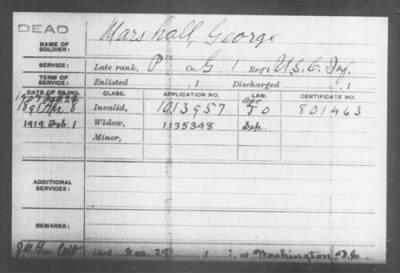 DEAD
NAME OF SOLDIER: Marshall, George
SERVICE: Late rank, P Co. G. 1 Reg't U.S.C. Inf.
TERM OF SERVICE: Enlisted , 1 Discharged , 1
DATE OF FILING. CLASS. APPLICATION NO. LAW. CERTIFICATE NO.
1891 Apr 8 Invalid, 1013957 J O 801463
1919 Feb. 1 Widow, 1135348 Sep.
Minor,
ADDITIONAL SERVICES:
REMARKS:
Died Nov. 29 , 1 , at Washington D.C.